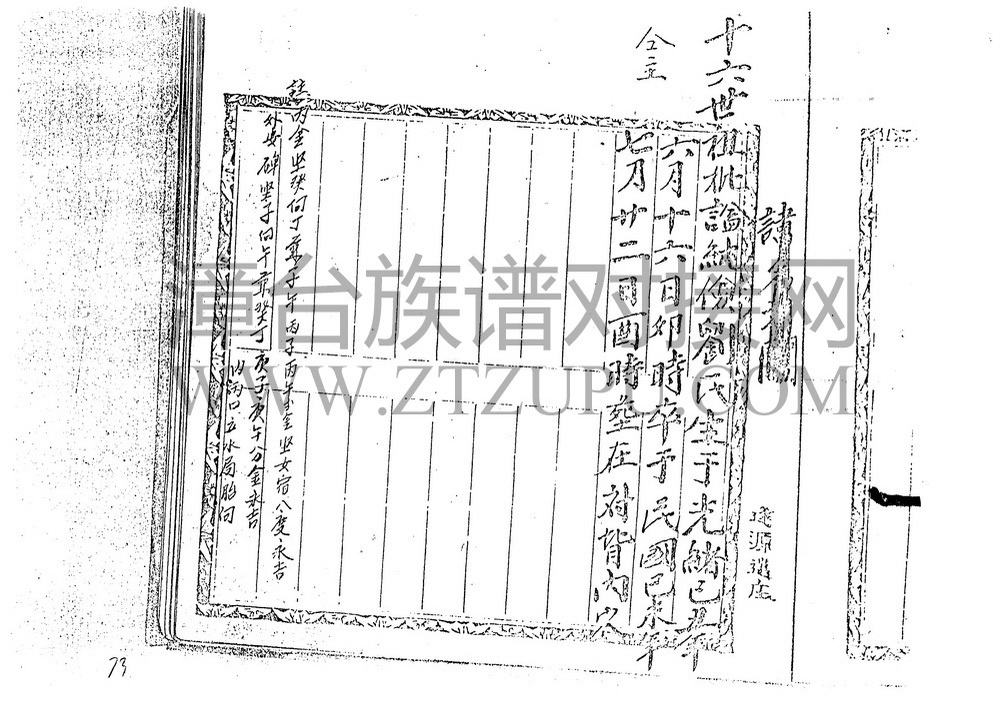 十六世祖妣謚純儉劉氏生于光緒己丑年
六月十六日卯時卒于民國己未年
七月廿二日酉時塟在府背內穴
仝立
誌內金坐癸向丁兼子午丙子丙午塟坐女宿八度永吉
外安碑坐子向午兼癸丁庚子庚午分金永吉
內丙口立水局胎向
源
73
章台族谱对接网
WWW.ZTZUPU.COM